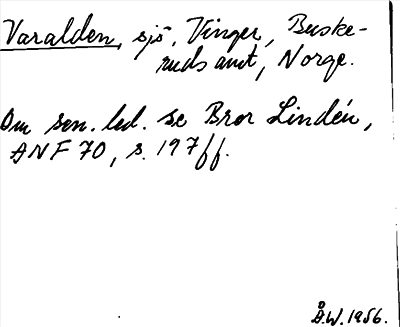 Varalden, sjö, Vinger, Buske-
ruds amt, Norge.
Om sen. led. se Bror Lindén,
ANF 70, s. 197ff.
Å.W. 1956.